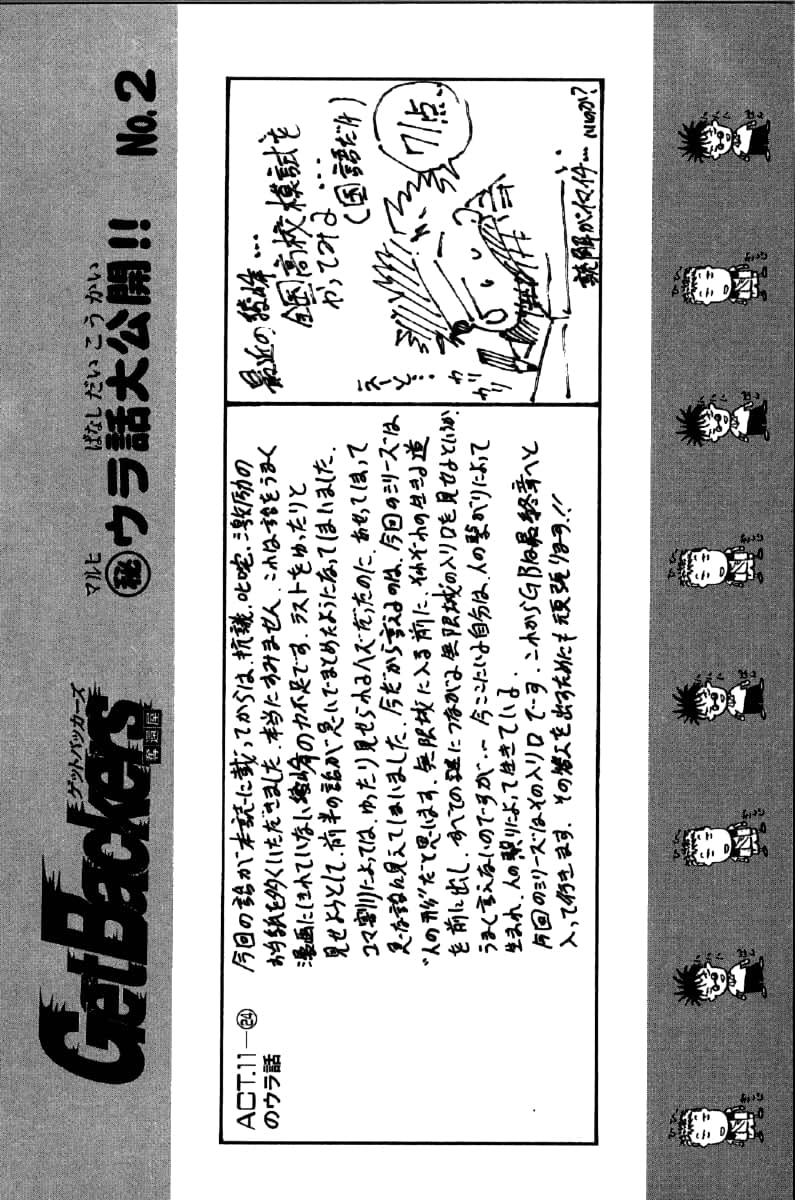 GetBackers
ゲットバッカーズ
奪還屋
マルヒ
㊙ウラ話大公開!!
ばなしだいこうかい
No.2
ACT.11—㉔
のウラ話
今回の話が本誌に載ってからは、抗議、叱咤、激励の
お手紙を多くいただきました。本当にすみません。これは話をうまく
漫画にしきれていない綾峰の力不足です。ラストをゆったりと
見せようとして、前半の話が急いでまとめたようになってしまいました。
コマ割りによっては、ゆったり見せられるハズだったのに、あせってしまって
急な話に見えてしまいました。今だから言えるのは、今回のシリーズは
“人の形”だと思います。無限城に入る前に、それぞれの生きる道
を前に出し、すべての謎につながる無限城の入り口を見せるというか、
うまく言えないのですが… 今ここにいる自分は、人の繋がりによって
生まれ、人の繋りによって生きている。
今回のシリーズはその入り口です。これからGBは最終章へと
入って行きます。その答えを出すためにも頑張ります!!
最近の綾峰…
全国高校模試を
やってみる…
(国語だけ)
71点…
えーと…
カリ
カリ
読解がイマイチ…